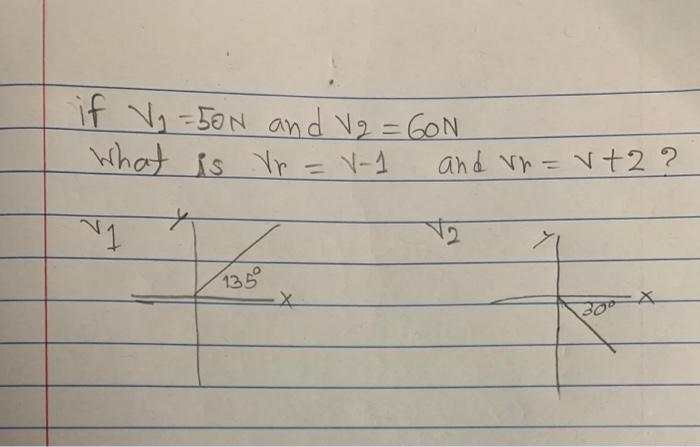 if V1 = 50N and V2 = 60N
What is Vr = V-1 and Vr = V+2 ?
V1 y 135° x
V2 y 30° x